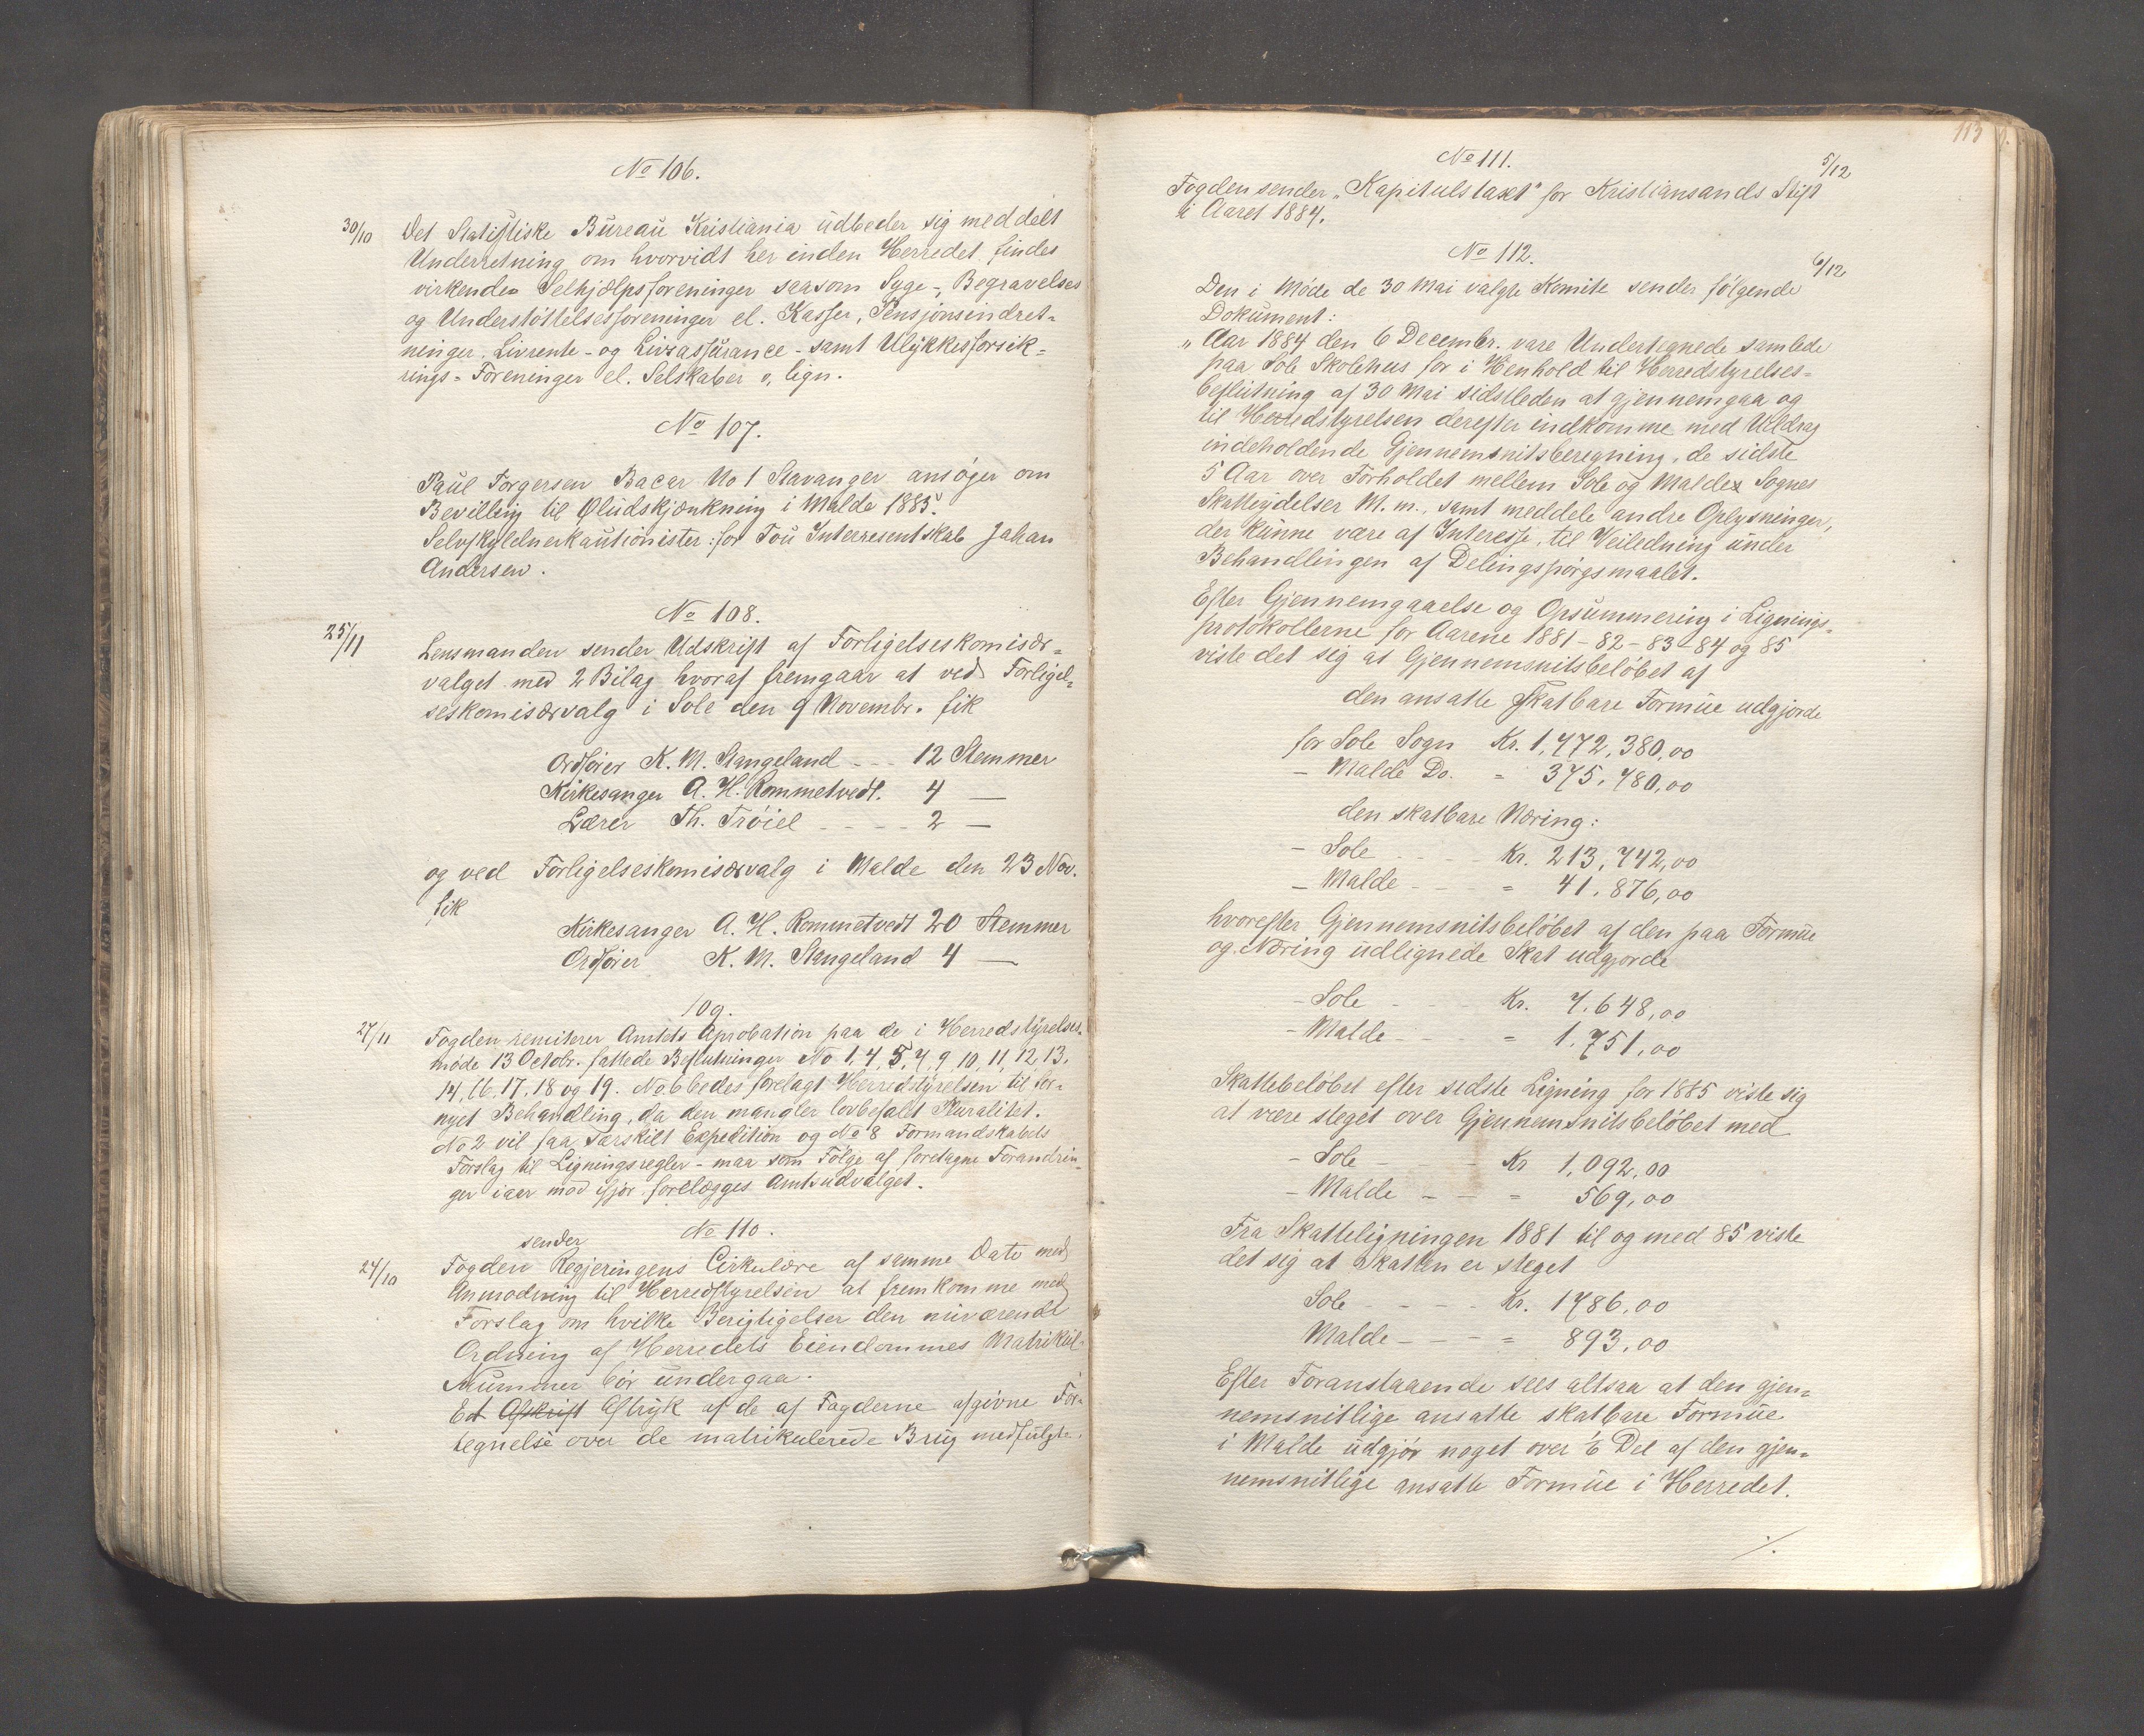 No 106.
30/10 Det Statistiske Bureau Kristiania udbeder sig meddelt
Underretning om hvorvidt her inden Herredet findes
virkende Selhjælpsforeninger saasom Syge-, Begravelses
og Understøttelsesforeninger el. Kasser, Pensjonsindret-
ninger, Livrente- og Livsassurance- samt Ulykkesforsik-
rings-Foreninger el. Selskaber o, lign.
No 107.
Paul Torgersen Bacer No 1 Stavanger ansøger om
Bevilling til Øludskjænkning i Malde 1885.
Selvskyldnerkautionister: for Tou Interresentskab Johan
Andersen.
No 108.
25/11 Lensmanden sender Udskrift af Forligelseskomisær-
valget med 2 Bilag hvoraf fremgaar at ved Forligel-
seskomisærvalg i Sole den 9 Novembr. fik
Ordfører K. M. Stangeland - - - 12 Stemmer
Kirkesanger A. H. Rommetvedt. 4 —
Lærer Th. Trøiel - - - - 2 —
og ved Forligelseskomisærvalg i Malde den 23 Nov.
fik
Kirkesanger A. H. Rommetvedt 20 Stemmer
Ordfører K. M. Stangeland 4 —
109.
27/11 Fogden remiterer Amtets Aprobation paa de i Herredstyrelses-
møde 13 Octobr. fattede Beslutninger No 1, 4, 5, 7, 9, 10, 11, 12, 13,
14, 16, 17, 18 og 19. No 6 bedes forelagt Herredstyrelsen til for-
nyet Behandling, da den mangler lovbefalet Pluralitet.
No 2 vil faa særskilt Expedition og No 8 Formandskabets
Forslag til Ligningsregler - maa som Følge af foretagne Forandrin-
ger iaar mod ifjor forelægges Amtsudvalget.
No 110.
sender
24/10 Fogden Regjeringens Cirkulære af samme Dato med
Anmodning til Herredstyrelsen at fremkomme med
Forslag om hvilke Berigtigelser den nuværende
Ordning af Herredets Eiendommes Matrikul-
Nummer bør undergaa.
Et Afskrift Aftryk af de af Fogderne afgivne For-
tegnelse over de matrikulerede Brug medfulgte.
113
No 111. 5/12
Fogden sender "Kapitulstaxt" for Kristiansands Stift
i Aaret 1884.
No 112. 6/12
Den i Møde de 30 Mai valgte Komite sender følgende
Dokument:
"Aar 1884 den 6 Decembr. vare Undertegnede samlede
paa Sole Skolehus for i Henhold til Herredstyrelses-
beslutning af 30 Mai sidstleden at gjennemgaa og
til Herredstyrelsen derefter indkomme med Uddrag
indeholdende Gjennemsnitsberegning, de sidste
5 Aar over Forholdet mellem Sole og Malde Sognes
Skatteydelser M. m., samt meddele andre Oplysninger,
der kunne være af Interesse, til Veiledning under
Behandlingen af Delingsspørgsmaalet.
Efter Gjennemgaaelse og Opsummering i Lignings-
protokollerne for Aarene 1881-82-83-84 og 85
viste det sig at Gjennemsnitsbeløbet af
den ansatte Skatbare Formue udgjorde
for Sole Sogn Kr. 1,472,380,00
- Malde Do. = 375,780,00
den skatbare Næring:
- Sole - - - Kr. 213,742,00
- Malde - - - = 41,876,00
hvorefter Gjennemsnitsbeløbet af den paa Formue
og Næring udlignede Skat udgjorde
- Sole - - - Kr. 7.648,00
- Malde - - - = 1.751,00
Skattebeløbet efter sidste Ligning for 1885 viste sig
at være steget over Gjennemsnitsbeløbet med
- Sole - - - Kr 1,092,00
- Malde - - = 569,00
Fra Skatteligningen 1881 til og med 85 viste
det sig at Skatten er steget
Sole - - - - Kr. 1786,00
Malde - - - = 893,00
Efter Foranstaaende sees altsaa at den gjen-
nemsnitlige ansatte skatbare Formue
i Malde udgjør noget over 1/6 Del af den gjen-
nemsnitlige ansatte Formue i Herredet.
./.